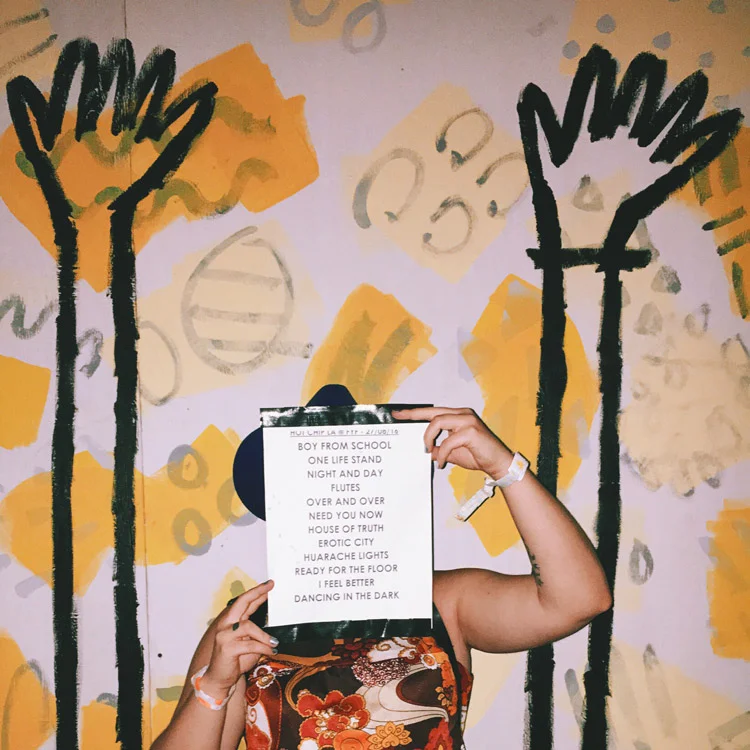 HOT CHIP LA @ FYF - 27/08/16
BOY FROM SCHOOL
ONE LIFE STAND
NIGHT AND DAY
FLUTES
OVER AND OVER
NEED YOU NOW
HOUSE OF TRUTH
EROTIC CITY
HUARACHE LIGHTS
READY FOR THE FLOOR
I FEEL BETTER
DANCING IN THE DARK